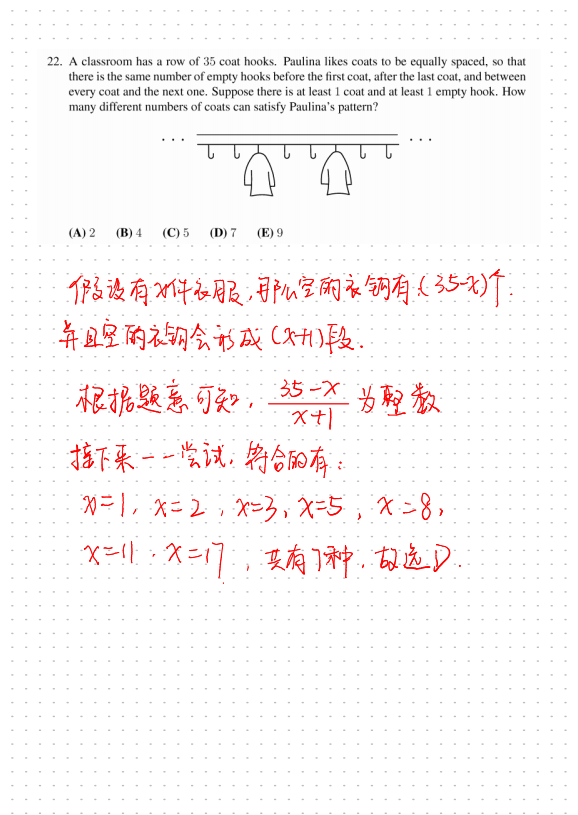 22. A classroom has a row of 35 coat hooks. Paulina likes coats to be equally spaced, so that
there is the same number of empty hooks before the first coat, after the last coat, and between
every coat and the next one. Suppose there is at least 1 coat and at least 1 empty hook. How
many different numbers of coats can satisfy Paulina's pattern?
(A) 2 (B) 4 (C) 5 (D) 7 (E) 9
假设有x件衣服,那么空的衣钩有(35-x)个.
并且空的衣钩会形成(x+1)段.
根据题意可知, \frac{35-x}{x+1} 为整数
接下来一一尝试,符合的有:
x=1, x=2, x=3, x=5, x=8,
x=11, x=17, 共有7种,故选D.